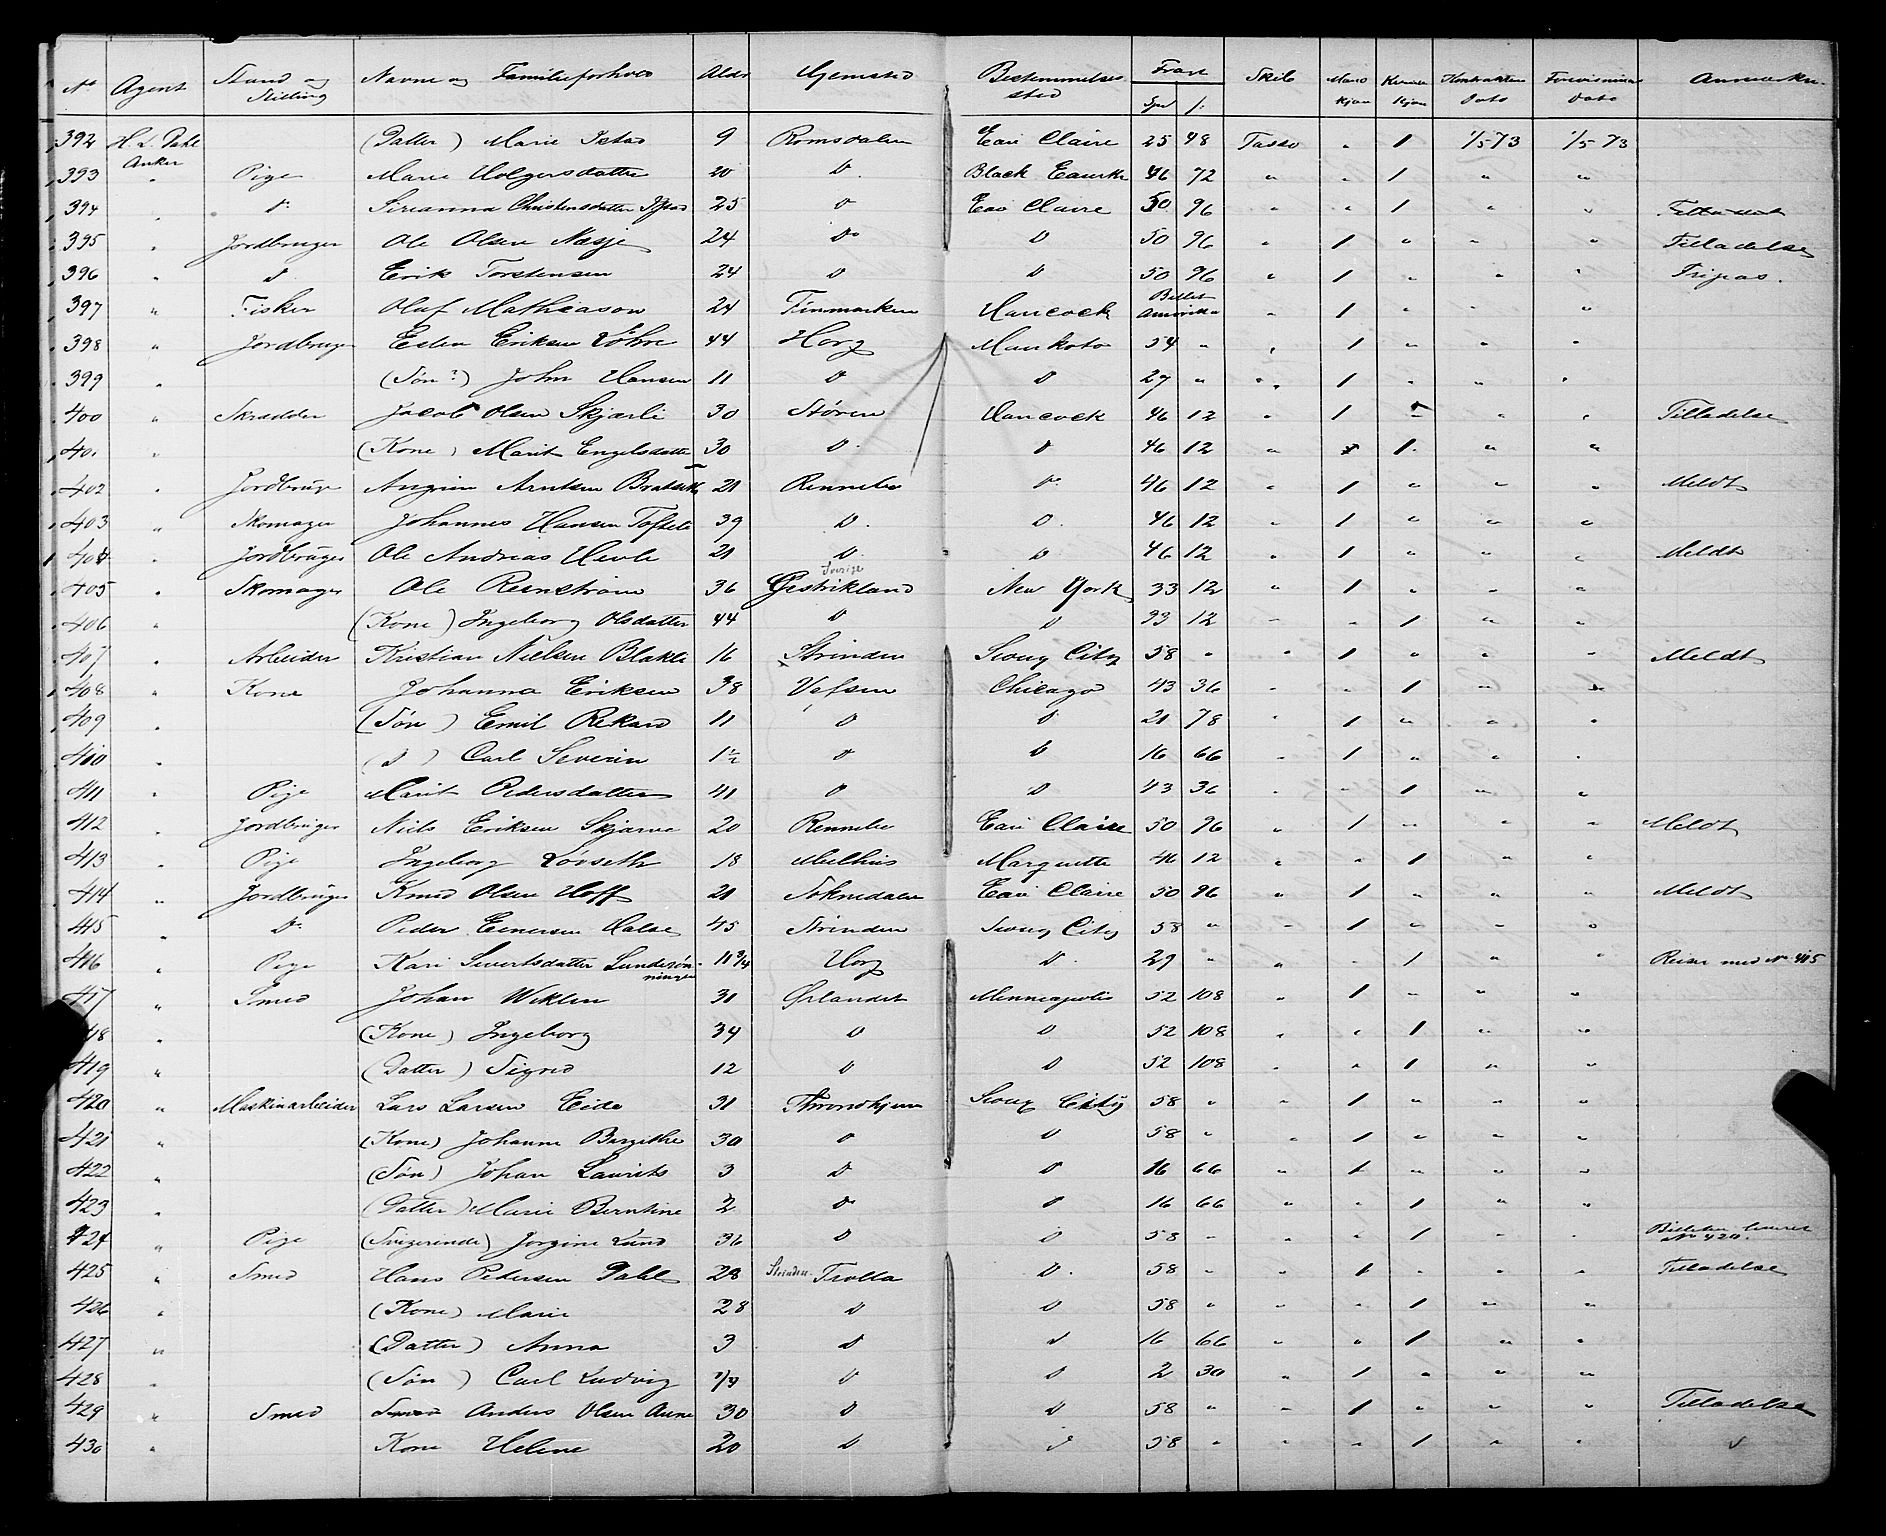 No Agent Stand og Stilling Navne og Familieforhold Alder Hjemsted Bestemmelses sted Fragt Spd ſ: Skib Mand kjøn Kvinde kjøn Kontraktens Dato Forevisnings Dato Anmærkn.
392 H. L. Dahl Anker (Datter) Marie Istad 9 Romsdalen Eau Claire 25 48 Tasso " 1 1/5 73 1/5 73
393 " Pige Marie Holgersdatter 20 D. Black Earth 46 72 " " 1 " "
394 " D. Sirianna Christensdatter 25 D Eau Claire 50 96 " " 1 " "
395 " Jordbruger Ole Olsen Næsje 24 Do D 50 96 " 1 " " " Tilladelse
396 " D Erik Torstensen 24 D D 50 96 " 1 " " " Fripas.
397 " Fisker Oluf Mathiason 24 Finmarken Hancock Billet Amerika " 1 " " "
398 " Jordbruger Esten Eriksen Løhre 44 Horg Mankato 54 " " 1 " " "
399 " (Søn?) John Hansen 11 D D 27 " " 1 " " "
400 " Skrædder Jacob Olsen Skjærli 30 Støren Hancock 46 12 " 1 " " " Tilladelse
401 " (Kone) Marit Engelsdatter 30 D. D 46 12 " 1 " "
402 " Jordbruger Arntsen 21 Rennebo D. 46 12 " 1 " " " Meldt
403 " Skomager Johannes Hansen 39 D. D. 46 12 " 1 " " "
404 " Jordbruger Ole Andreas Hevle 21 D. D 46 12 " 1 " " " Meldt
405 " Skomager Ole Renström 36 Sverige Gestrikland New York 33 12 " 1 " " "
406 " (Kone) Ingeborg Olsdatter 44 D D 33 12 " " 1 " "
407 " Arbeider Kristian Nielsen Blakli 16 Strinden Sioux City 58 " " 1 " " " Meldt
408 " Kone Johanna Eriksen 38 Vefsen Chicago 43 36 " " 1 " "
409 " (Søn) Emil Rikard 11 D D 21 78 " 1 " " "
410 " (D) Carl Severin 1½ D D 16 66 " 1 " " "
411 " Pige Marit Pedersdatter 41 D D 43 36 " " 1 " "
412 " Jordbruger Niels Eriksen Skjærve 20 Rennebo Eau Claire 50 96 " 1 " " " Meldt
413 " Pige Ingeborg Løvseth 18 Melhus Marquette 46 12 " " 1 " "
414 " Jordbruger Knud Olsen Hoff 21 Soknedalen Eau Claire 50 96 " 1 " " " Meldt
415 " D. Peder Einersen Halse 45 Strinden Sioux City 58 " " 1 " " "
416 " Pige Kari Sivertsdatter 11 3/4 Horg D. 29 " " " 1 " " Reiser med No 415
417 " Smed Johan Wiklen 31 Ørlandet Minneapolis 52 108 " 1 " " "
418 " (Kone) Ingeborg 34 D D 52 108 " " 1 " "
419 " (Datter) Sigrid 12 D D 52 108 " " 1 " "
420 " Maskinarbeider Lars Larsen Eide 31 Throndhjem Sioux City 58 " " 1 " " "
421 " (Kone) Johanne Bergithe 30 D D 58 " " 1 " " "
422 " (Søn) Johan Laurits 3 D D 16 66 " 1 " " "
423 " (Datter) Marie Berntine 2 D D 16 66 " " 1 " "
424 " Pige (Svigerinde) Jorgine Lund 36 D D 58 " " " 1 " " Billeten leveret No 420.
425 " Smed Hans Pedersen Dahl 28 Strinden Trolla D. 58 " " 1 " " " Tilladelse
426 " (Kone) Marie 28 D D 58 " " " 1 " "
427 " (Datter) Anna 3 D D 16 66 " " 1 " "
428 " (Søn) Carl Ludvig D D 2 30 " 1 " " "
429 " Smed Smed Anders Olsen Aune 30 D D 58 " " 1 " " " Tilladelse
430 " Kone Helene 20 D D 58 " " " 1 " " D